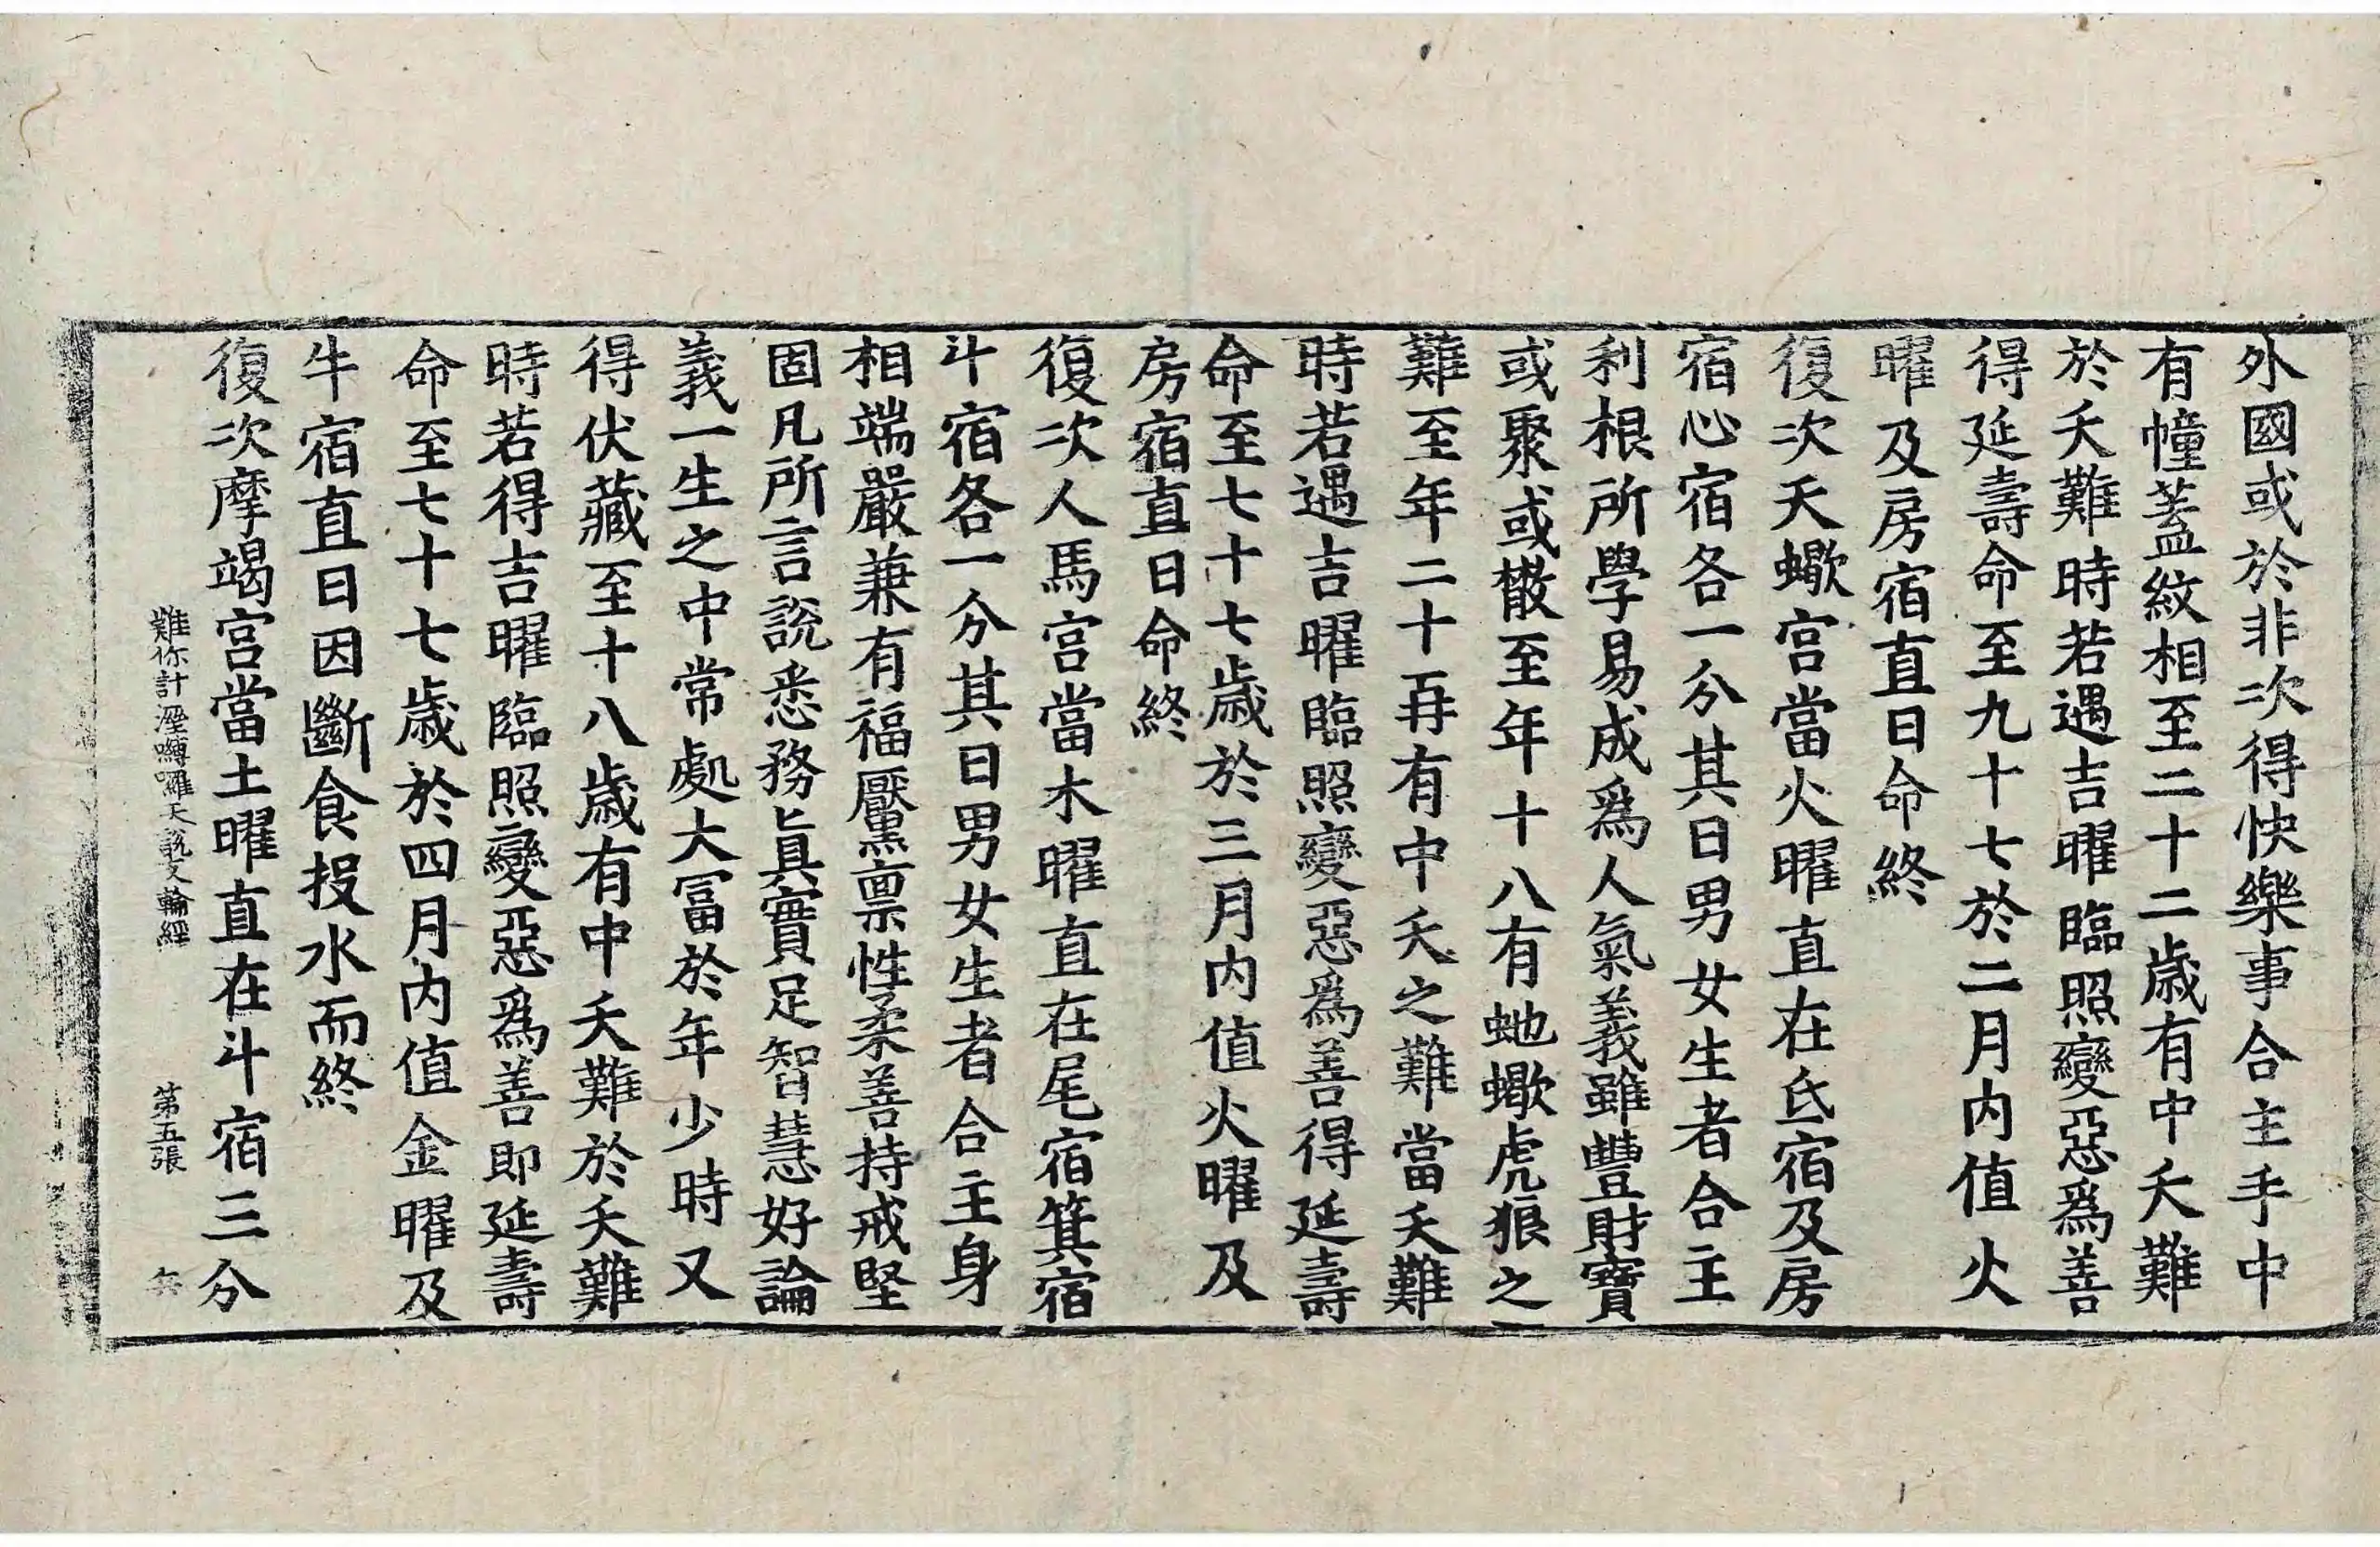 外國或於非次得快樂事合主手中
有幢蓋紋相至二十二歲有中夭難
於夭難時若遇吉曜臨照變惡爲善
得延壽命至九十七於二月内值火
曜及房宿直日命終
復次天蠍宫當火曜直在氐宿及房
宿心宿各一分其日男女生者合主
利根所學易成爲人氣義雖豐財寶
或聚或散至年十八有虵蠍虎狼之
難至年二十再有中夭之難當夭難
時若遇吉曜臨照變惡爲善得延壽
命至七十七歲於三月内值火曜及
房宿直日命終
復次人馬宫當木曜直在尾宿箕宿
斗宿各一分其日男女生者合主身
相端嚴兼有福黶禀性柔善持戒堅
固凡所言說悉務眞實足智慧好論
義一生之中常處大冨於年少時又
得伏藏至十八歲有中夭難於夭難
時若得吉曜臨照變惡爲善即延壽
命至七十七歲於四月内值金曜及
牛宿直日因斷食投水而終
復次摩竭宫當土曜直在斗宿三分
難你計溼嚩囉天說支輪經 第五張